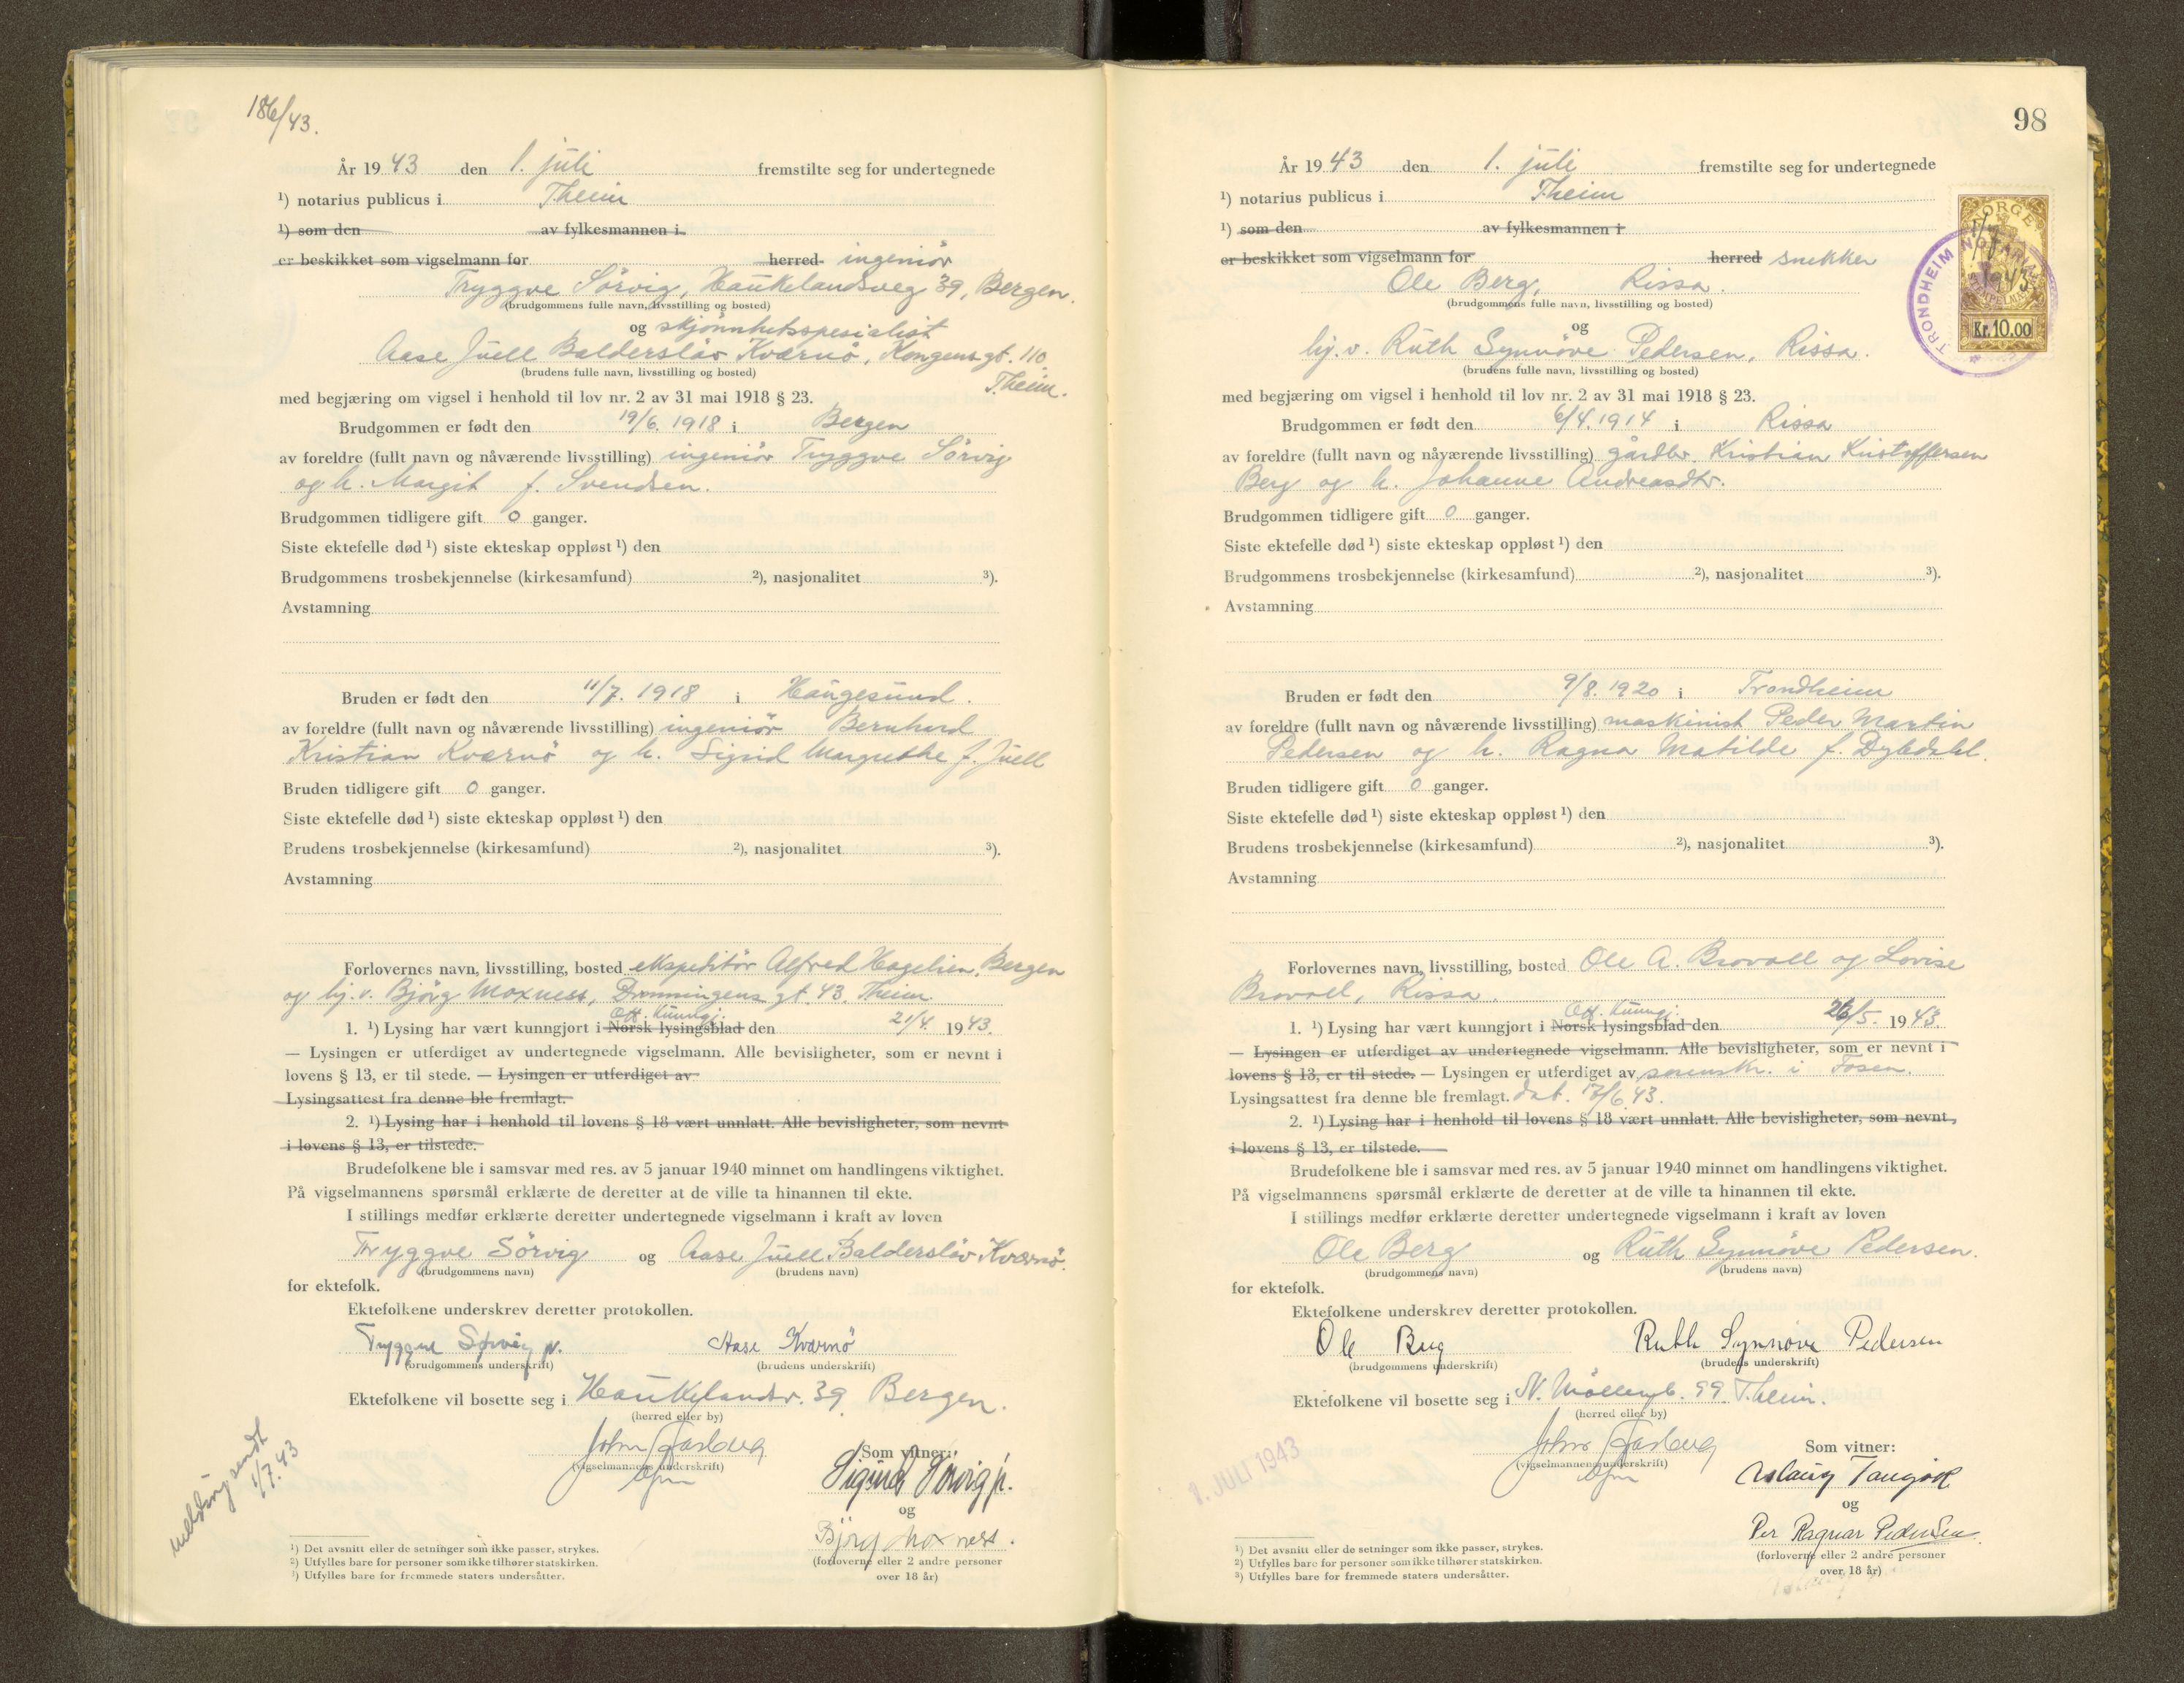 186/43.
År 1943 den 1. juli fremstilte seg for undertegnede
¹) notarius publicus i Theim
¹) som den av fylkesmannen i
er beskikket som vigselmann for herred ingeniör
Tryggve Sörvig, Haukelandsveg 39, Bergen.
(brudgommens fulle navn, livsstilling og bosted)
og skjönnhetsspesialist
Aase Juell Balderslöv Kværnö, Kongens gt. 110
(brudens fulle navn, livsstilling og bosted) Theim.
med begjæring om vigsel i henhold til lov nr. 2 av 31 mai 1918 § 23.
Brudgommen er født den 19/6. 1918 i Bergen
av foreldre (fullt navn og nåværende livsstilling) ingeniör Tryggve Sörvig
og h. Margit f. Svendsen.
Brudgommen tidligere gift 0 ganger.
Siste ektefelle død ¹) siste ekteskap oppløst ¹) den
Brudgommens trosbekjennelse (kirkesamfund) ²), nasjonalitet ³).
Avstamning
Bruden er født den 11/7. 1918 i Haugesund.
av foreldre (fullt navn og nåværende livsstilling) ingeniör Bernhard
Kristian Kværnö og h. Sigrid Margrethe f. Juell
Bruden tidligere gift 0 ganger.
Siste ektefelle død ¹) siste ekteskap oppløst ¹) den
Brudens trosbekjennelse (kirkesamfund) ²), nasjonalitet ³).
Avstamning
Forlovernes navn, livsstilling, bosted ekspeditör Alfred Hagelien, Bergen
og hj. v. Björg Moxness, Dronningens gt. 43. Theim
Off. Kunngj.
1. ¹) Lysing har vært kunngjort i Norsk lysingsblad den 21/4. 1943.
— Lysingen er utferdiget av undertegnede vigselmann. Alle bevisligheter, som er nevnt i
lovens § 13, er til stede. — Lysingen er utferdiget av
Lysingsattest fra denne ble fremlagt.
2. ¹) Lysing har i henhold til lovens § 18 vært unnlatt. Alle bevisligheter, som nevnt
i lovens § 13, er tilstede.
Brudefolkene ble i samsvar med res. av 5 januar 1940 minnet om handlingens viktighet.
På vigselmannens spørsmål erklærte de deretter at de ville ta hinannen til ekte.
I stillings medfør erklærte deretter undertegnede vigselmann i kraft av loven
Tryggve Sörvig og Aase Juell Balderslöv Kværnö.
(brudgommens navn) (brudens navn)
for ektefolk.
Ektefolkene underskrev deretter protokollen.
Tryggve Sørvig jr. Aase Kværnö
(brudgommens underskrift) (brudens underskrift)
Ektefolkene vil bosette seg i Haukelandsv. 39. Bergen.
(herred eller by)
(vigselmannens underskrift)
Som vitner:
Sigurd Sørvig jr.
og
Bjørg Moxness.
(forloverne eller 2 andre personer
over 18 år)
melding sendt
1/7.43
¹) Det avsnitt eller de setninger som ikke passer, strykes.
²) Utfylles bare for personer som ikke tilhører statskirken.
³) Utfylles bare for fremmede staters undersåtter.
98
År 1943 den 1. juli fremstilte seg for undertegnede
¹) notarius publicus i Theim
¹) som den av fylkesmannen i
er beskikket som vigselmann for herred snekker
Ole Berg, Rissa.
(brudgommens fulle navn, livsstilling og bosted)
og
hj. v. Ruth Synnöve Pedersen, Rissa.
(brudens fulle navn, livsstilling og bosted)
NORGE
1/7 1943
Kr. 10.00
TRONDHEIM NOTARIAL
med begjæring om vigsel i henhold til lov nr. 2 av 31 mai 1918 § 23.
Brudgommen er født den 6/4. 1914 i Rissa
av foreldre (fullt navn og nåværende livsstilling) gårdbr. Kristian Kristoffersen
Berg og h. Johanne Andreasdtr.
Brudgommen tidligere gift 0 ganger.
Siste ektefelle død ¹) siste ekteskap oppløst ¹) den
Brudgommens trosbekjennelse (kirkesamfund) ²), nasjonalitet ³).
Avstamning
Bruden er født den 9/8. 1920 i Trondheim
av foreldre (fullt navn og nåværende livsstilling) maskinist Peder Martin
Pedersen og h. Ragna Matilde f. Dybdahl.
Bruden tidligere gift 0 ganger.
Siste ektefelle død ¹) siste ekteskap oppløst ¹) den
Brudens trosbekjennelse (kirkesamfund) ²), nasjonalitet ³).
Avstamning
Forlovernes navn, livsstilling, bosted Ole A. Brovoll og Lovise
Brovoll, Rissa.
Off. Kunngj.
1. ¹) Lysing har vært kunngjort i Norsk lysingsblad den 26/5. 1943.
— Lysingen er utferdiget av undertegnede vigselmann. Alle bevisligheter, som er nevnt i
lovens § 13, er til stede. — Lysingen er utferdiget av sorenskr. i Fosen.
Lysingsattest fra denne ble fremlagt. dat. 17/6.43.
2. ¹) Lysing har i henhold til lovens § 18 vært unnlatt. Alle bevisligheter, som nevnt,
i lovens § 13, er tilstede.
Brudefolkene ble i samsvar med res. av 5 januar 1940 minnet om handlingens viktighet.
På vigselmannens spørsmål erklærte de deretter at de ville ta hinannen til ekte.
I stillings medfør erklærte deretter undertegnede vigselmann i kraft av loven
Ole Berg og Ruth Synnöve Pedersen.
(brudgommens navn) (brudens navn)
for ektefolk.
Ektefolkene underskrev deretter protokollen.
Ole Berg Ruth Synnöve Pedersen
(brudgommens underskrift) (brudens underskrift)
Ektefolkene vil bosette seg i N. Möllenb. 99. Theim.
(herred eller by)
(vigselmannens underskrift)
1. JULI 1943
Som vitner:
Aslaug
og
Per Ragnar Pedersen
(forloverne eller 2 andre personer
over 18 år)
¹) Det avsnitt eller de setninger som ikke passer, strykes.
²) Utfylles bare for personer som ikke tilhører statskirken.
³) Utfylles bare for fremmede staters undersåtter.